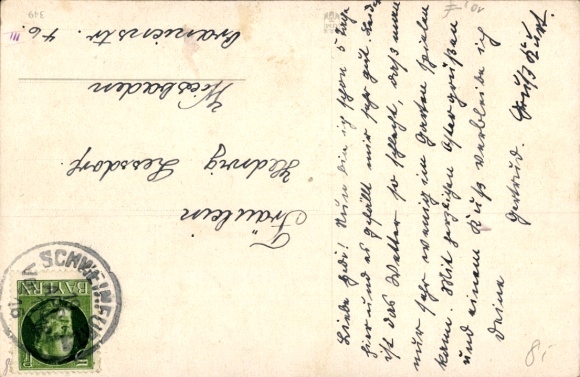 Liebe Hedi! Nun bin ich schon 5 Tage
hier und es gefällt mir sehr gut. Leider
ist das Wetter so schlecht, daß man
nur sehr wenig im Garten spielen
kann. Mit herzlichen Ostergrüßen
und einem Kuß verbleibe ich
Deine
Gertrud. Gruß Kurt.
Fräulein
Hedwig Lessdorf.
Wiesbaden
Oranienstr. 46. III
SCHWEINFURT
BAYERN
349
8,-